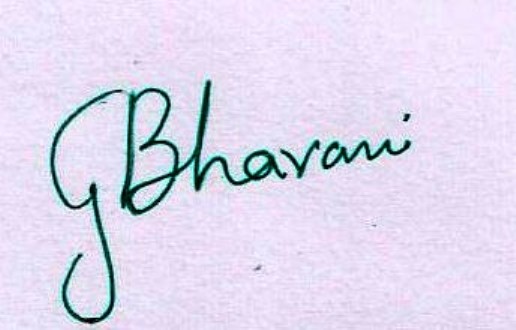 G Bhavani